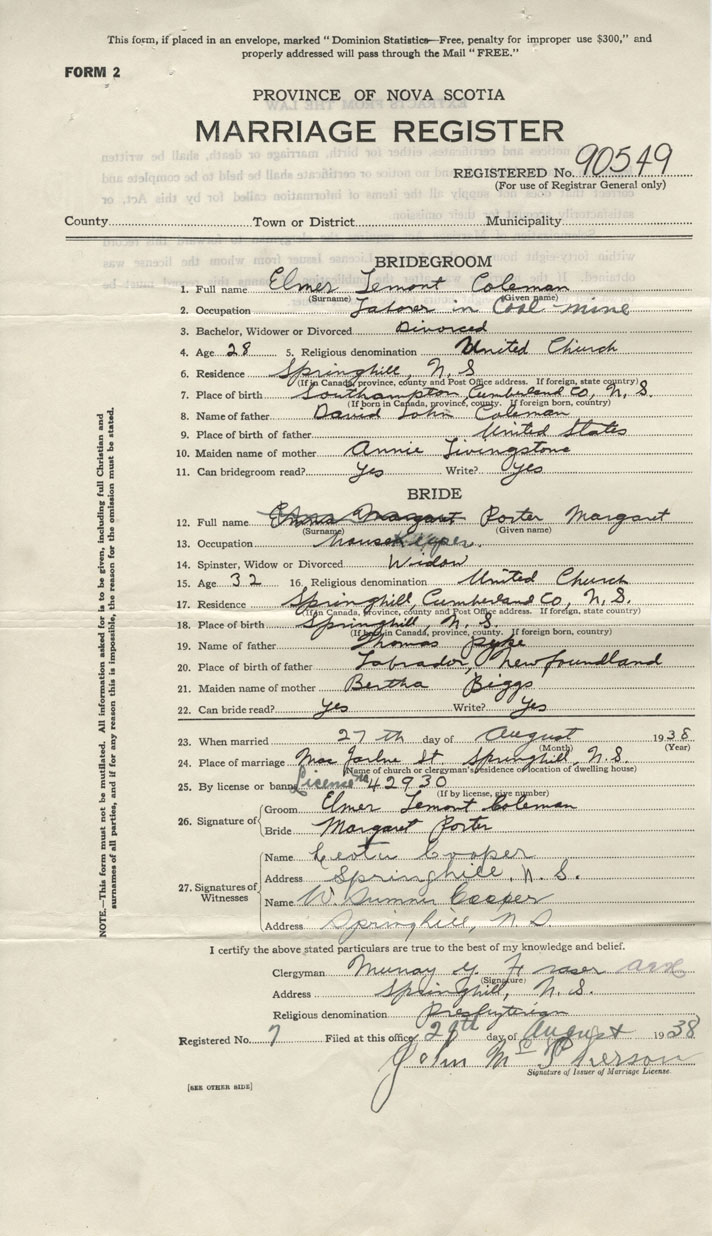 This form, if placed in an envelope, marked "Dominion Statistics—Free, penalty for improper use $300," and
properly addressed will pass through the Mail "FREE."
FORM 2
PROVINCE OF NOVA SCOTIA
MARRIAGE REGISTER
REGISTERED No. 90549
(For use of Registrar General only)
County Town or District Municipality
BRIDEGROOM
1. Full name Elmer Lemont Coleman
(Surname) (Given name)
2. Occupation Laborer in Coal mine
3. Bachelor, Widower or Divorced Divorced
4. Age 28 5. Religious denomination United Church
6. Residence Springhill, N. S
(If in Canada, province, county and Post Office address. If foreign, state country)
7. Place of birth Southampton Cumberland Co, N. S.
(If born in Canada, province, county. If foreign born, country)
8. Name of father David John Coleman
9. Place of birth of father United States
10. Maiden name of mother Annie Livingstone
11. Can bridegroom read? Yes Write? Yes
BRIDE
12. Full name Margaret Porter Margaret
(Surname) (Given name)
13. Occupation housekeeper.
14. Spinster, Widow or Divorced Widow
15. Age 32 16. Religious denomination United Church
17. Residence Springhill, Cumberland Co, N. S.
(If in Canada, province, county and Post Office address. If foreign, state country)
18. Place of birth Springhill, N. S.
(If born in Canada, province, county. If foreign born, country)
19. Name of father Thomas Pyke
20. Place of birth of father Labrador, Newfoundland
21. Maiden name of mother Bertha Biggs
22. Can bride read? Yes Write? Yes
23. When married 27th day of August 1938
(Month) (Year)
24. Place of marriage Mac Farlne St. Springhill, N.S.
(Name of church or clergyman's residence or location of dwelling house)
25. By license or banns License No 42930
(If by license, give number)
26. Signature of
Groom Elmer Lemont Coleman
Bride Margaret Porter
27. Signatures of Witnesses
Name Leota Cooper
Address Springhill, N. S.
Name W. Sumner Cooper
Address Springhill, N.S.
I certify the above stated particulars are true to the best of my knowledge and belief.
Clergyman Murray Y. Fraser
(Signature)
Address Springhill, N. S.
Religious denomination Presbyterian
Registered No. 7 Filed at this office 29th day of August 1938
John McPherson
Signature of Issuer of Marriage License.
[SEE OTHER SIDE]
NOTE.—This form must not be mutilated. All information asked for is to be given, including full Christian and
surnames of all parties, and if for any reason this is impossible, the reason for the omission must be stated.